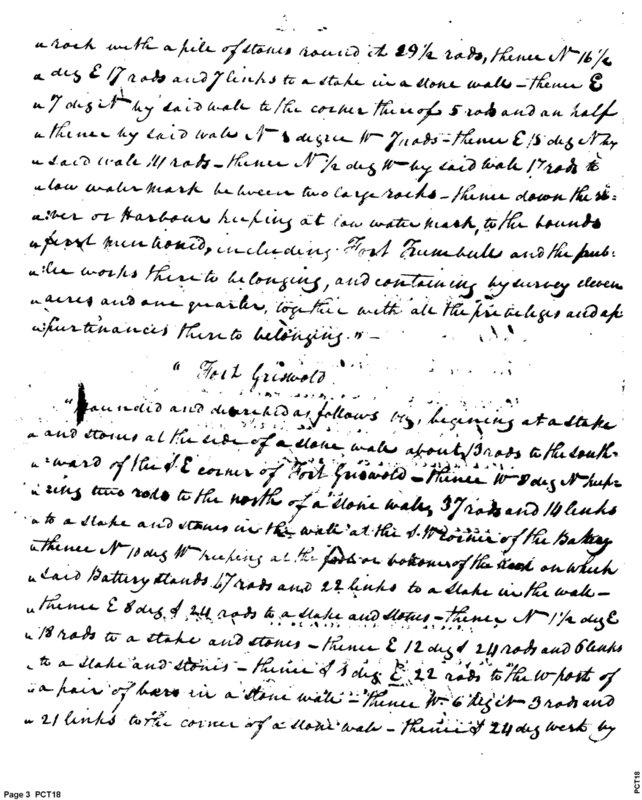 " rock with a pile of stones round it 29 1/2 rods, thence N 16 1/2
" deg E 17 rods and 7 links to a stake in a stone wall - thence E
" 7 deg N by said wall to the corner thereof 5 rods and an half
" thence by said wall N degree W 7 rods - thence E 15 deg N by
" said wall 11 rods - thence N 1/2 deg W by said wall 17 rods to
" low water mark between two large rocks - thence down the ri=
" ver or Harbour keeping at low water mark, to the bounds
" first mentioned, including Fort Trumbull and the pub=
" lic works there to belonging, and containing by survey eleven
" acres and one quarter, together with all the priveleges and ap
" purtinances there to belonging." -
" Fort Griswold
" Bounded and described as follows viz, begining at a stake
" and stones at the side of a stone wall about 13 rods to the south=
" ward of the S E corner of Fort Griswold - thence W 8 deg N keep=
" ing two rods to the north of a stone wall, 37 rods and 14 links
" to a stake and stones in the wall at the S. W corner of the Battery
" thence N 10 deg W keeping at the or bottom of the on which
" said Battery stands 47 rods and 22 links to a stake in the wall -
" thence E 8 deg S 24 rods to a stake and stones - thence N 1 1/2 deg E
" 18 rods to a stake and stones - thence E 12 deg S 24 rods and 6 links
" to a stake and stones - thence S deg E 22 rods to the W post of
" a pair of bars in a stone wall - thence W. 6 deg 3 rods and
" 21 links to the corner of a stone wall - thence S 24 deg west by
Page 3 PCT18
PCT18